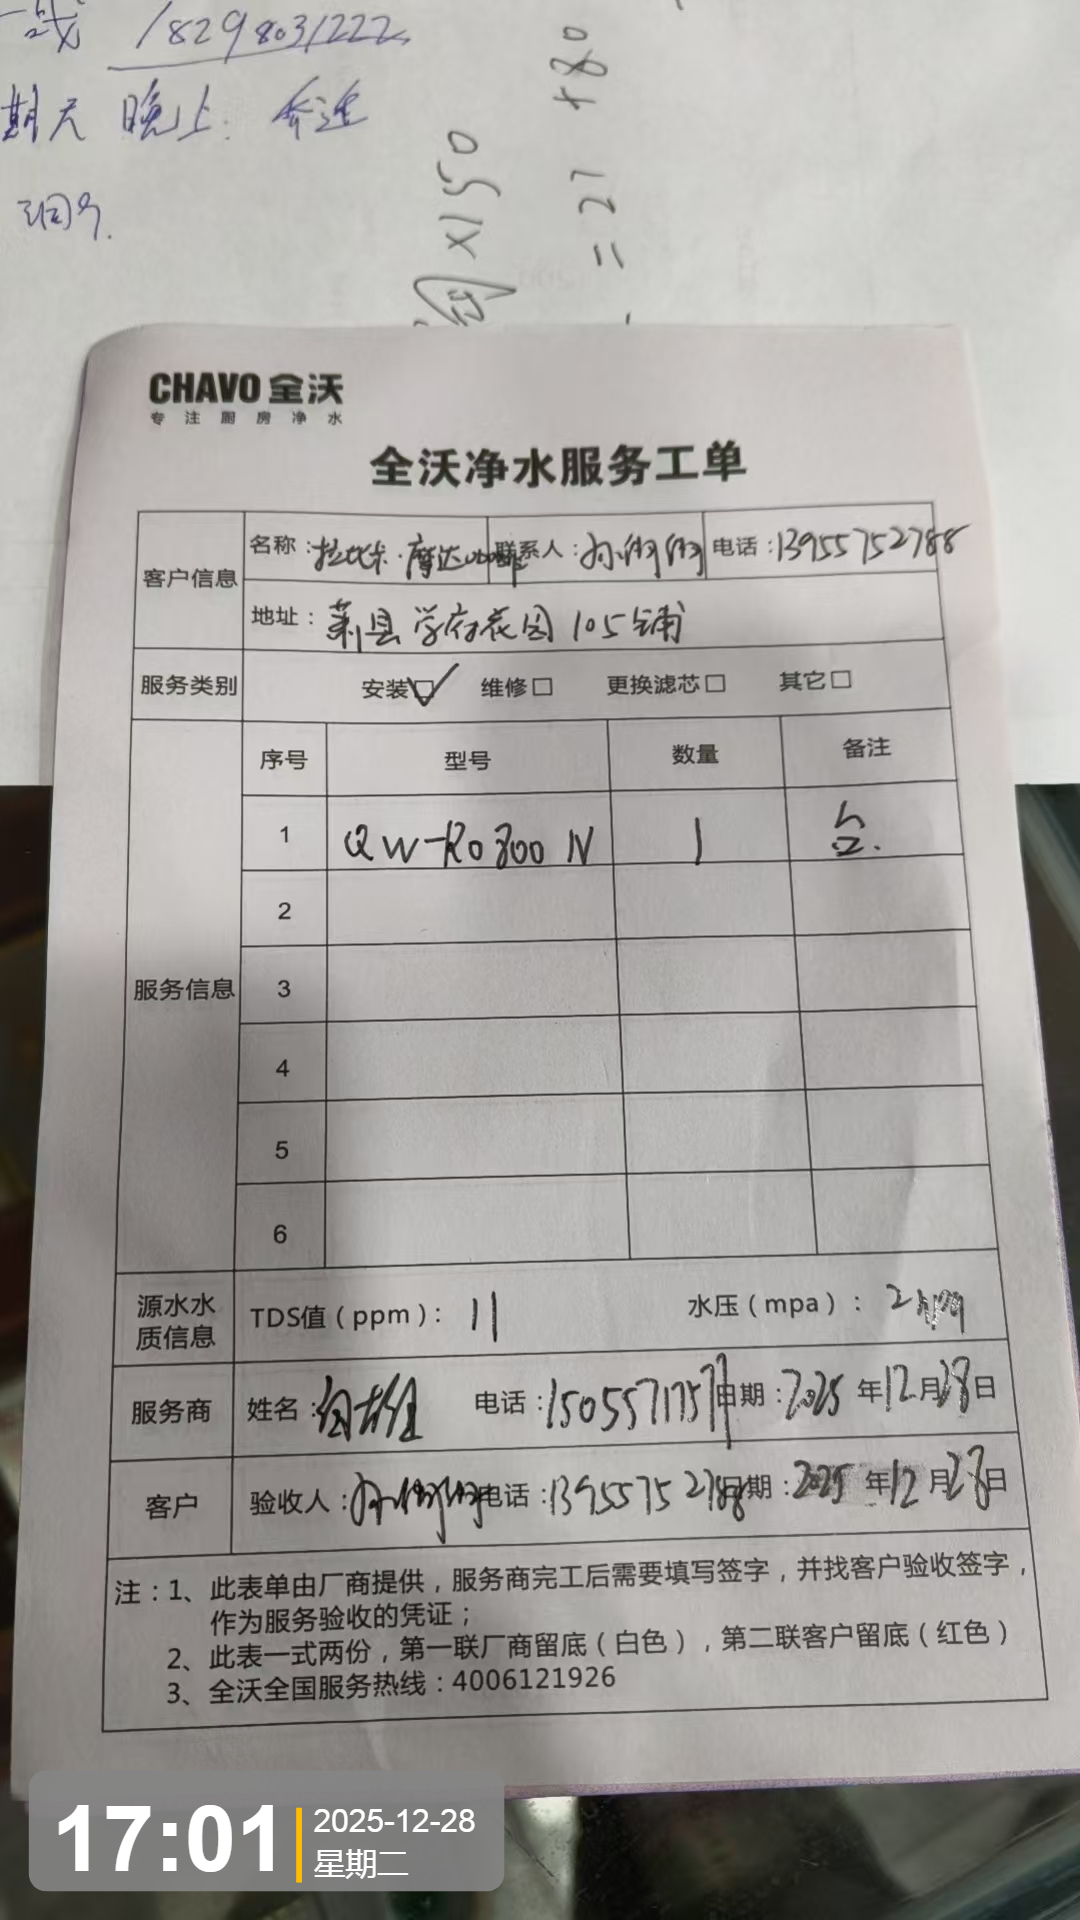 18298031222
期天 晚上:
×150
= 27 +80
CHAVO 全沃
专注厨房净水
全沃净水服务工单
客户信息 名称:拉比卡·摩达 联系人:孙俐俐 电话:13955752788
地址:萧县学府花园105铺
服务类别 安装☑ 维修□ 更换滤芯□ 其它□
服务信息 序号 型号 数量 备注
1 QW-R0800N 1 台.
2
3
4
5
6
源水水质信息 TDS值(ppm): 11 水压(mpa):
服务商 姓名: 电话:15055717577 日期:2025年12月28日
客户 验收人:孙俐俐 电话:13955752788 日期:2025年12月28日
注:1、此表单由厂商提供,服务商完工后需要填写签字,并找客户验收签字,
作为服务验收的凭证;
2、此表一式两份,第一联厂商留底(白色),第二联客户留底(红色)
3、全沃全国服务热线:4006121926
17:01 2025-12-28
星期二